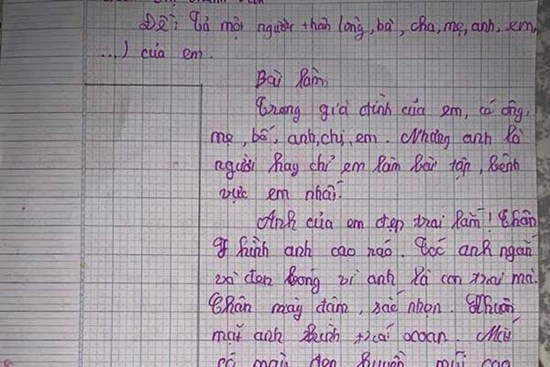 Đề: Tả một người thân (ông, bà, cha, mẹ, anh, em,
...) của em.
Bài làm
Trong gia đình của em, có ông,
mẹ, bố, anh, chị, em. Nhưng anh là
người hay chỉ em làm bài tập, bênh
vực em nhất.
Anh của em đẹp trai lắm! Thân
hình anh cao ráo. Tóc anh ngắn
và đen bóng vì anh là con trai mà.
Chân mày đậm, sắc nhọn. Khuôn
mặt anh hình trái xoan. Mắt
có màu đen huyền, mũi cao